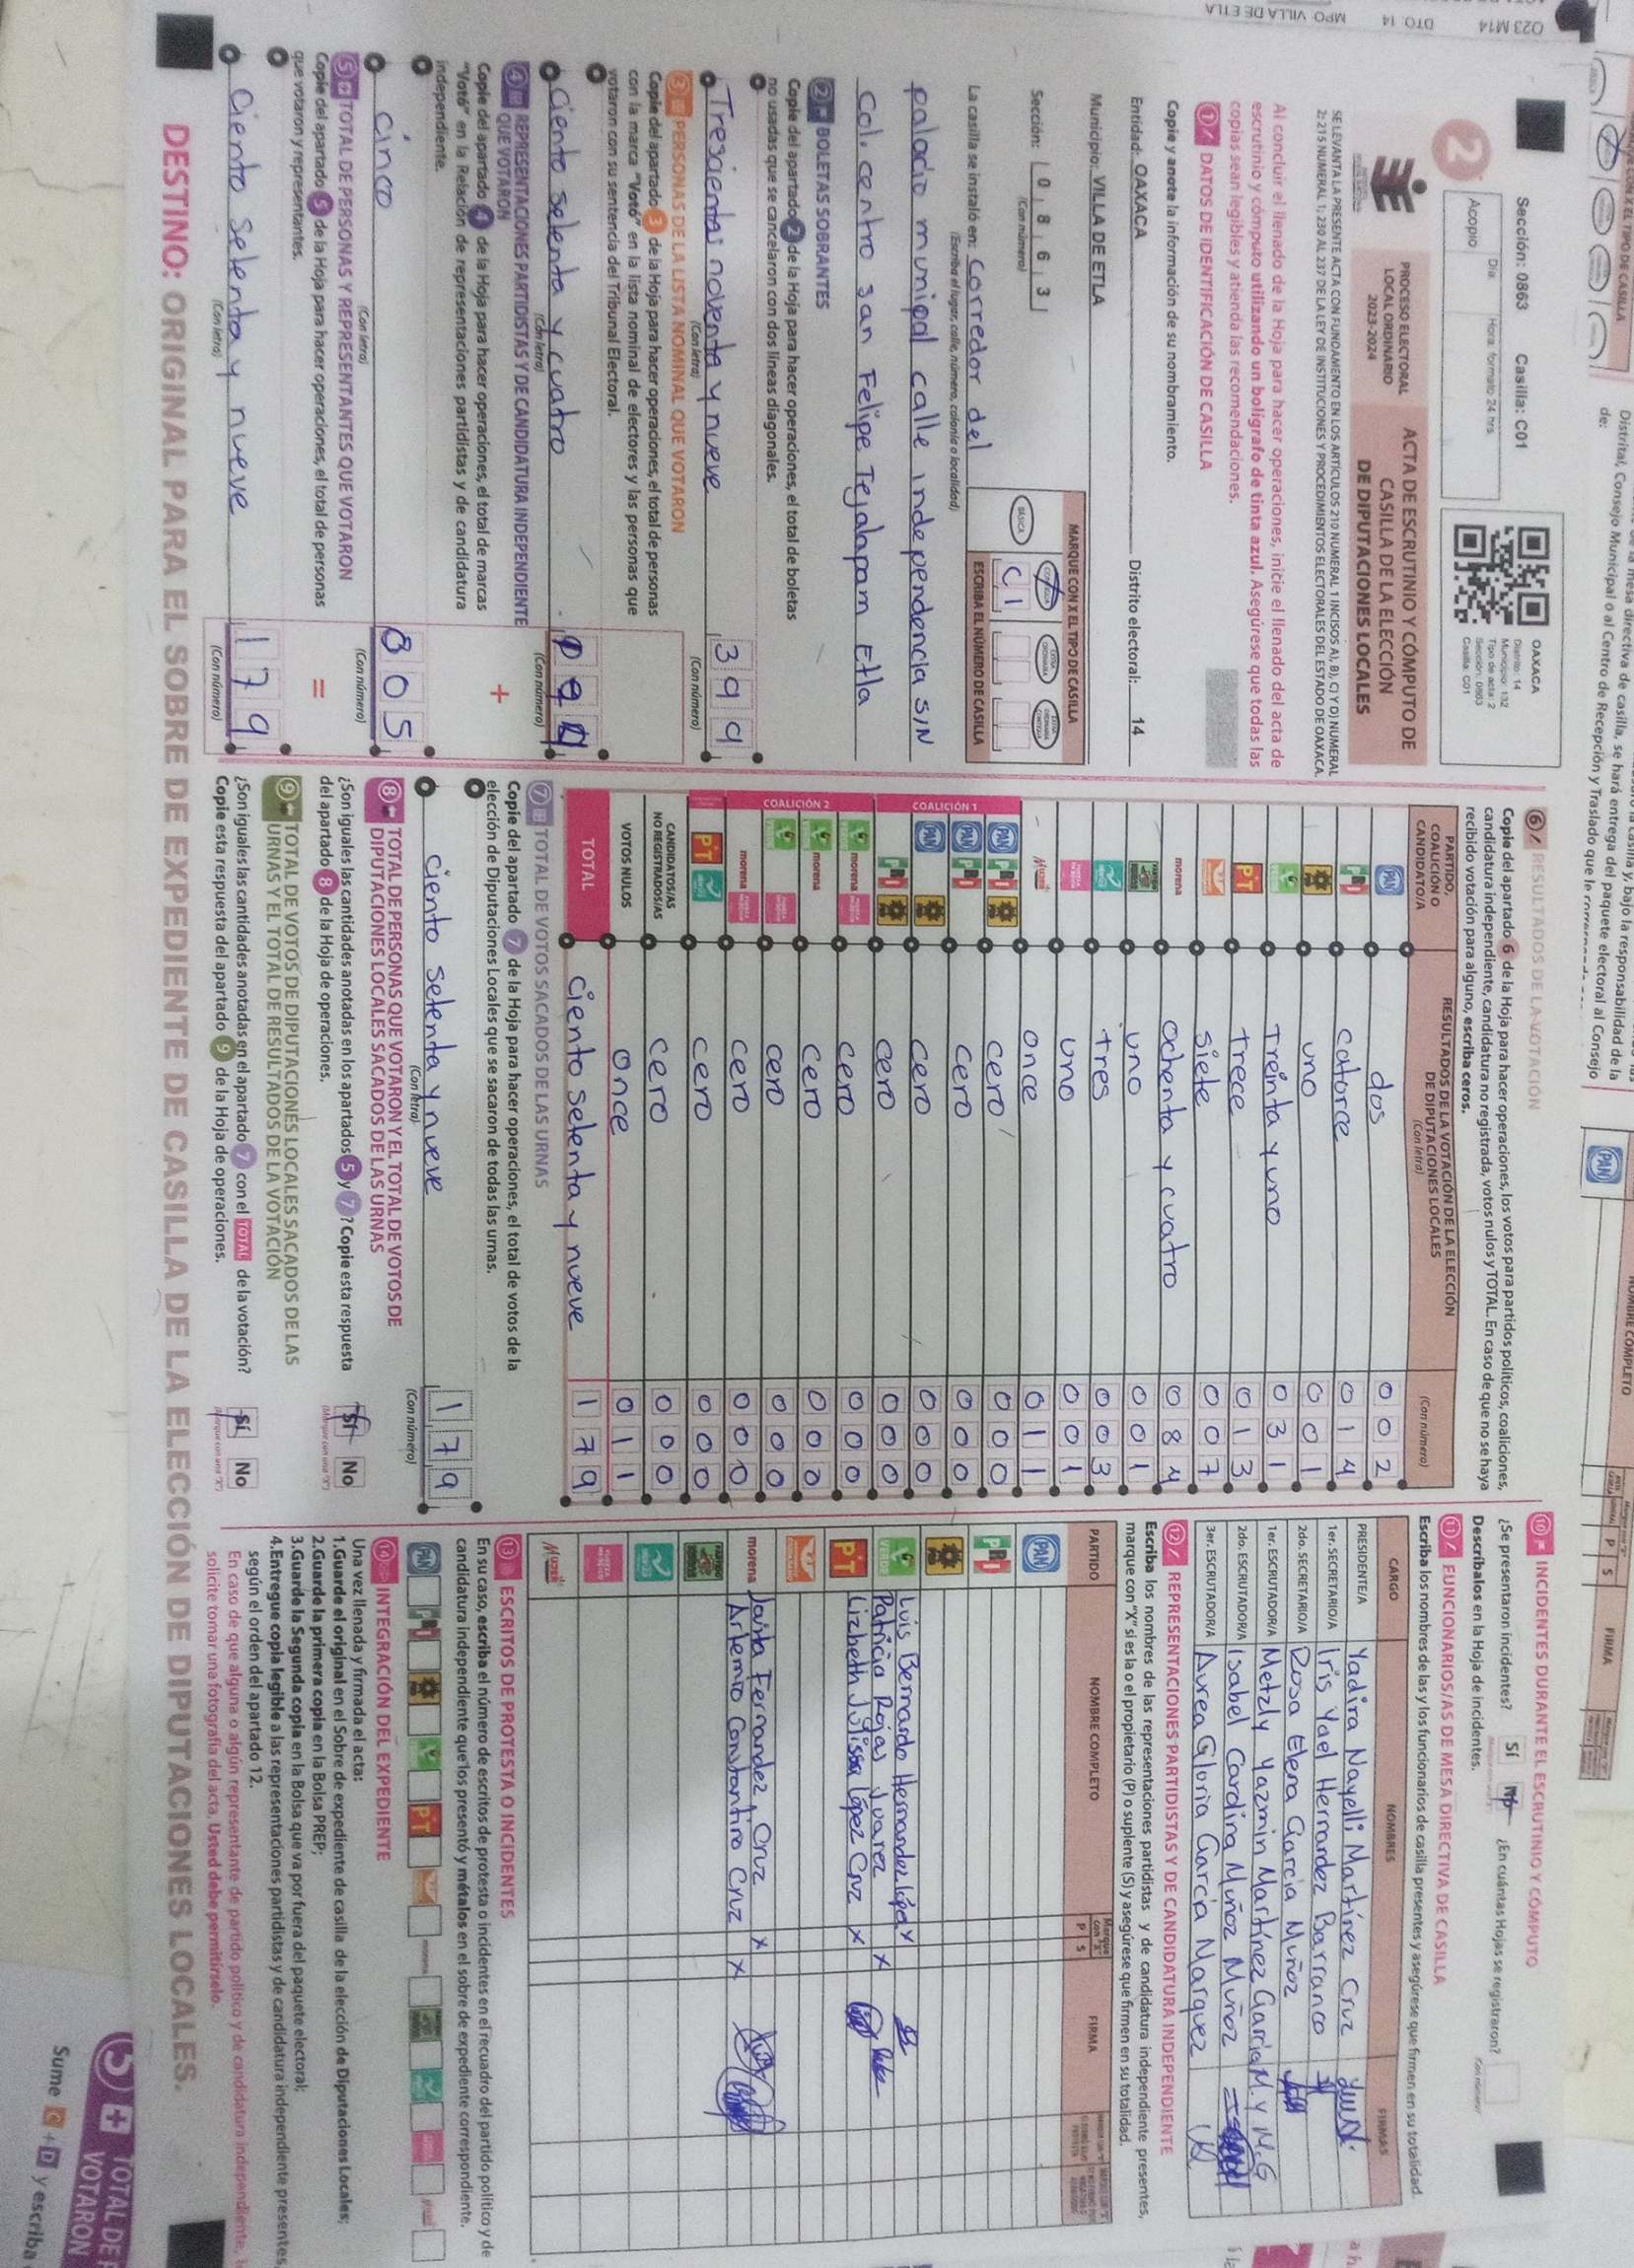 Sección: 0863 Casilla: C01
2
Día: Hora: formato 24 hrs.
Acopio
OAXACA
Distrito: 14
Municipio: 132
Tipo de acta: 2
Sección: 0863
Casilla: C01
PROCESO ELECTORAL
LOCAL ORDINARIO
2023-2024
ACTA DE ESCRUTINIO Y CÓMPUTO DE
CASILLA DE LA ELECCIÓN
DE DIPUTACIONES LOCALES
SE LEVANTA LA PRESENTE ACTA CON FUNDAMENTO EN LOS ARTÍCULOS 210 NUMERAL 1 INCISOS A), B), C) Y D) NUMERAL
2; 215 NUMERAL 1; 230 AL 237 DE LA LEY DE INSTITUCIONES Y PROCEDIMIENTOS ELECTORALES DEL ESTADO DE OAXACA.
Al concluir el llenado de la Hoja para hacer operaciones, inicie el llenado del acta de
escrutinio y cómputo utilizando un bolígrafo de tinta azul. Asegúrese que todas las
copias sean legibles y atienda las recomendaciones.
1 DATOS DE IDENTIFICACIÓN DE CASILLA
Copie y anote la información de su nombramiento.
Entidad: OAXACA Distrito electoral: 14
Municipio: VILLA DE ETLA
Sección: 0 8 6 3
(Con número)
MARQUE CON X EL TIPO DE CASILLA
BÁSICA
ESCRIBA EL NÚMERO DE CASILLA
C 1
La casilla se instaló en: Corredor del
(Escriba el lugar, calle, número, colonia o localidad)
palacio municipal calle independencia SIN
Col. centro san Felipe Tejalapam Etla
2 BOLETAS SOBRANTES
Copie del apartado 2 de la Hoja para hacer operaciones, el total de boletas
no usadas que se cancelaron con dos líneas diagonales.
Trescientos noventa y nueve 3 9 9
(Con letra) (Con número)
3 PERSONAS DE LA LISTA NOMINAL QUE VOTARON
Copie del apartado 3 de la Hoja para hacer operaciones, el total de personas
con la marca "Votó" en la lista nominal de electores y las personas que
votaron con su sentencia del Tribunal Electoral.
ciento setenta y cuatro
(Con letra) (Con número)
4 REPRESENTACIONES PARTIDISTAS Y DE CANDIDATURA INDEPENDIENTE
QUE VOTARON
+
Copie del apartado 4 de la Hoja para hacer operaciones, el total de marcas
"Votó" en la Relación de representaciones partidistas y de candidatura
independiente.
cinco 0 0 5
(Con letra) (Con número)
5 TOTAL DE PERSONAS Y REPRESENTANTES QUE VOTARON
=
Copie del apartado 5 de la Hoja para hacer operaciones, el total de personas
que votaron y representantes.
Ciento setenta y nueve 1 7 9
(Con letra) (Con número)
6 RESULTADOS DE LA VOTACIÓN
Copie del apartado 6 de la Hoja para hacer operaciones, los votos para partidos políticos, coaliciones,
candidatura independiente, candidatura no registrada, votos nulos y TOTAL. En caso de que no se haya
recibido votación para alguno, escriba ceros.
PARTIDO,
COALICIÓN O
CANDIDATO/A
RESULTADOS DE LA VOTACIÓN DE LA ELECCIÓN
DE DIPUTACIONES LOCALES
(Con letra) (Con número)
PAN dos 0 0 2
PRI catorce 0 1 4
uno 0 0 1
VERDE Treinta y uno 0 3 1
PT trece 0 1 3
siete 0 0 7
morena ochenta y cuatro 0 8 4
uno 0 0 1
tres 0 0 3
uno 0 0 1
Mujer once 0 1 1
COALICIÓN 1
PAN PRI cero 0 0 0
PAN PRI cero 0 0 0
PAN cero 0 0 0
PRI cero 0 0 0
COALICIÓN 2
VERDE morena cero 0 0 0
VERDE morena cero 0 0 0
VERDE cero 0 0 0
morena cero 0 0 0
PT cero 0 0 0
CANDIDATOS/AS
NO REGISTRADOS/AS cero 0 0 0
VOTOS NULOS once 0 1 1
TOTAL ciento setenta y nueve 1 7 9
7 TOTAL DE VOTOS SACADOS DE LAS URNAS
Copie del apartado 7 de la Hoja para hacer operaciones, el total de votos de la
elección de Diputaciones Locales que se sacaron de todas las urnas.
ciento setenta y nueve 1 7 9
(Con letra) (Con número)
8 TOTAL DE PERSONAS QUE VOTARON Y EL TOTAL DE VOTOS DE
DIPUTACIONES LOCALES SACADOS DE LAS URNAS
¿Son iguales las cantidades anotadas en los apartados 5 y 7? Copie esta respuesta
del apartado 8 de la Hoja de operaciones.
Sí No
9 TOTAL DE VOTOS DE DIPUTACIONES LOCALES SACADOS DE LAS
URNAS Y EL TOTAL DE RESULTADOS DE LA VOTACIÓN
¿Son iguales las cantidades anotadas en el apartado 7 con el TOTAL de la votación?
Copie esta respuesta del apartado 9 de la Hoja de operaciones.
Sí No
10 INCIDENTES DURANTE EL ESCRUTINIO Y CÓMPUTO
¿Se presentaron incidentes? Sí No ¿En cuántas Hojas se registraron?
Descríbalos en la Hoja de incidentes.
11 FUNCIONARIOS/AS DE MESA DIRECTIVA DE CASILLA
Escriba los nombres de las y los funcionarios de casilla presentes y asegúrese que firmen en su totalidad.
CARGO NOMBRES FIRMAS
PRESIDENTE/A Yadira Nayelli Martínez Cruz
1er. SECRETARIO/A Iris Yael Hernandez Barranco
2do. SECRETARIO/A Rosa Elena García Muñoz
1er. ESCRUTADOR/A Metzly Yazmin Martínez García M.Y.M.G
2do. ESCRUTADOR/A Isabel Cardina Muñoz Muñoz
3er. ESCRUTADOR/A Aurea Gloria García Marquez
12 REPRESENTACIONES PARTIDISTAS Y DE CANDIDATURA INDEPENDIENTE
Escriba los nombres de las representaciones partidistas y de candidatura independiente presentes,
marque con "X" si es la o el propietario (P) o suplente (S) y asegúrese que firmen en su totalidad.
PARTIDO NOMBRE COMPLETO Marque con "X" P S FIRMA
PAN
PRI
VERDE Luis Bernardo Hernandez López x
Patricia Rojas Juarez x
PT Lizbeth Julissa López Cruz x
morena Janita Fernandez Cruz x
Artemio Constantino Cruz x
Mujer
13 ESCRITOS DE PROTESTA O INCIDENTES
En su caso, escriba el número de escritos de protesta o incidentes en el recuadro del partido político y de
candidatura independiente que los presentó y métalos en el sobre de expediente correspondiente.
PAN PRI VERDE PT morena
14 INTEGRACIÓN DEL EXPEDIENTE
Una vez llenada y firmada el acta:
1.Guarde el original en el Sobre de expediente de casilla de la elección de Diputaciones Locales;
2.Guarde la primera copia en la Bolsa PREP;
3.Guarde la Segunda copia en la Bolsa que va por fuera del paquete electoral;
4.Entregue copia legible a las representaciones partidistas y de candidatura independiente presentes,
según el orden del apartado 12.
En caso de que alguna o algún representante de partido político y de candidatura independiente,
solicite tomar una fotografía del acta, Usted debe permitírselo.
DESTINO: ORIGINAL PARA EL SOBRE DE EXPEDIENTE DE CASILLA DE LA ELECCIÓN DE DIPUTACIONES LOCALES.
O23 M14 DTO 14 MPO VILLA DE ETLA
EL TIPO DE CASILLA
Distrital, Consejo Municipal o al Centro de Recepción y Traslado que le
de:
PAN
NOMBRE COMPLETO
P S FIRMA
5 + TOTAL DE
VOTARON
Sume C + D y escriba